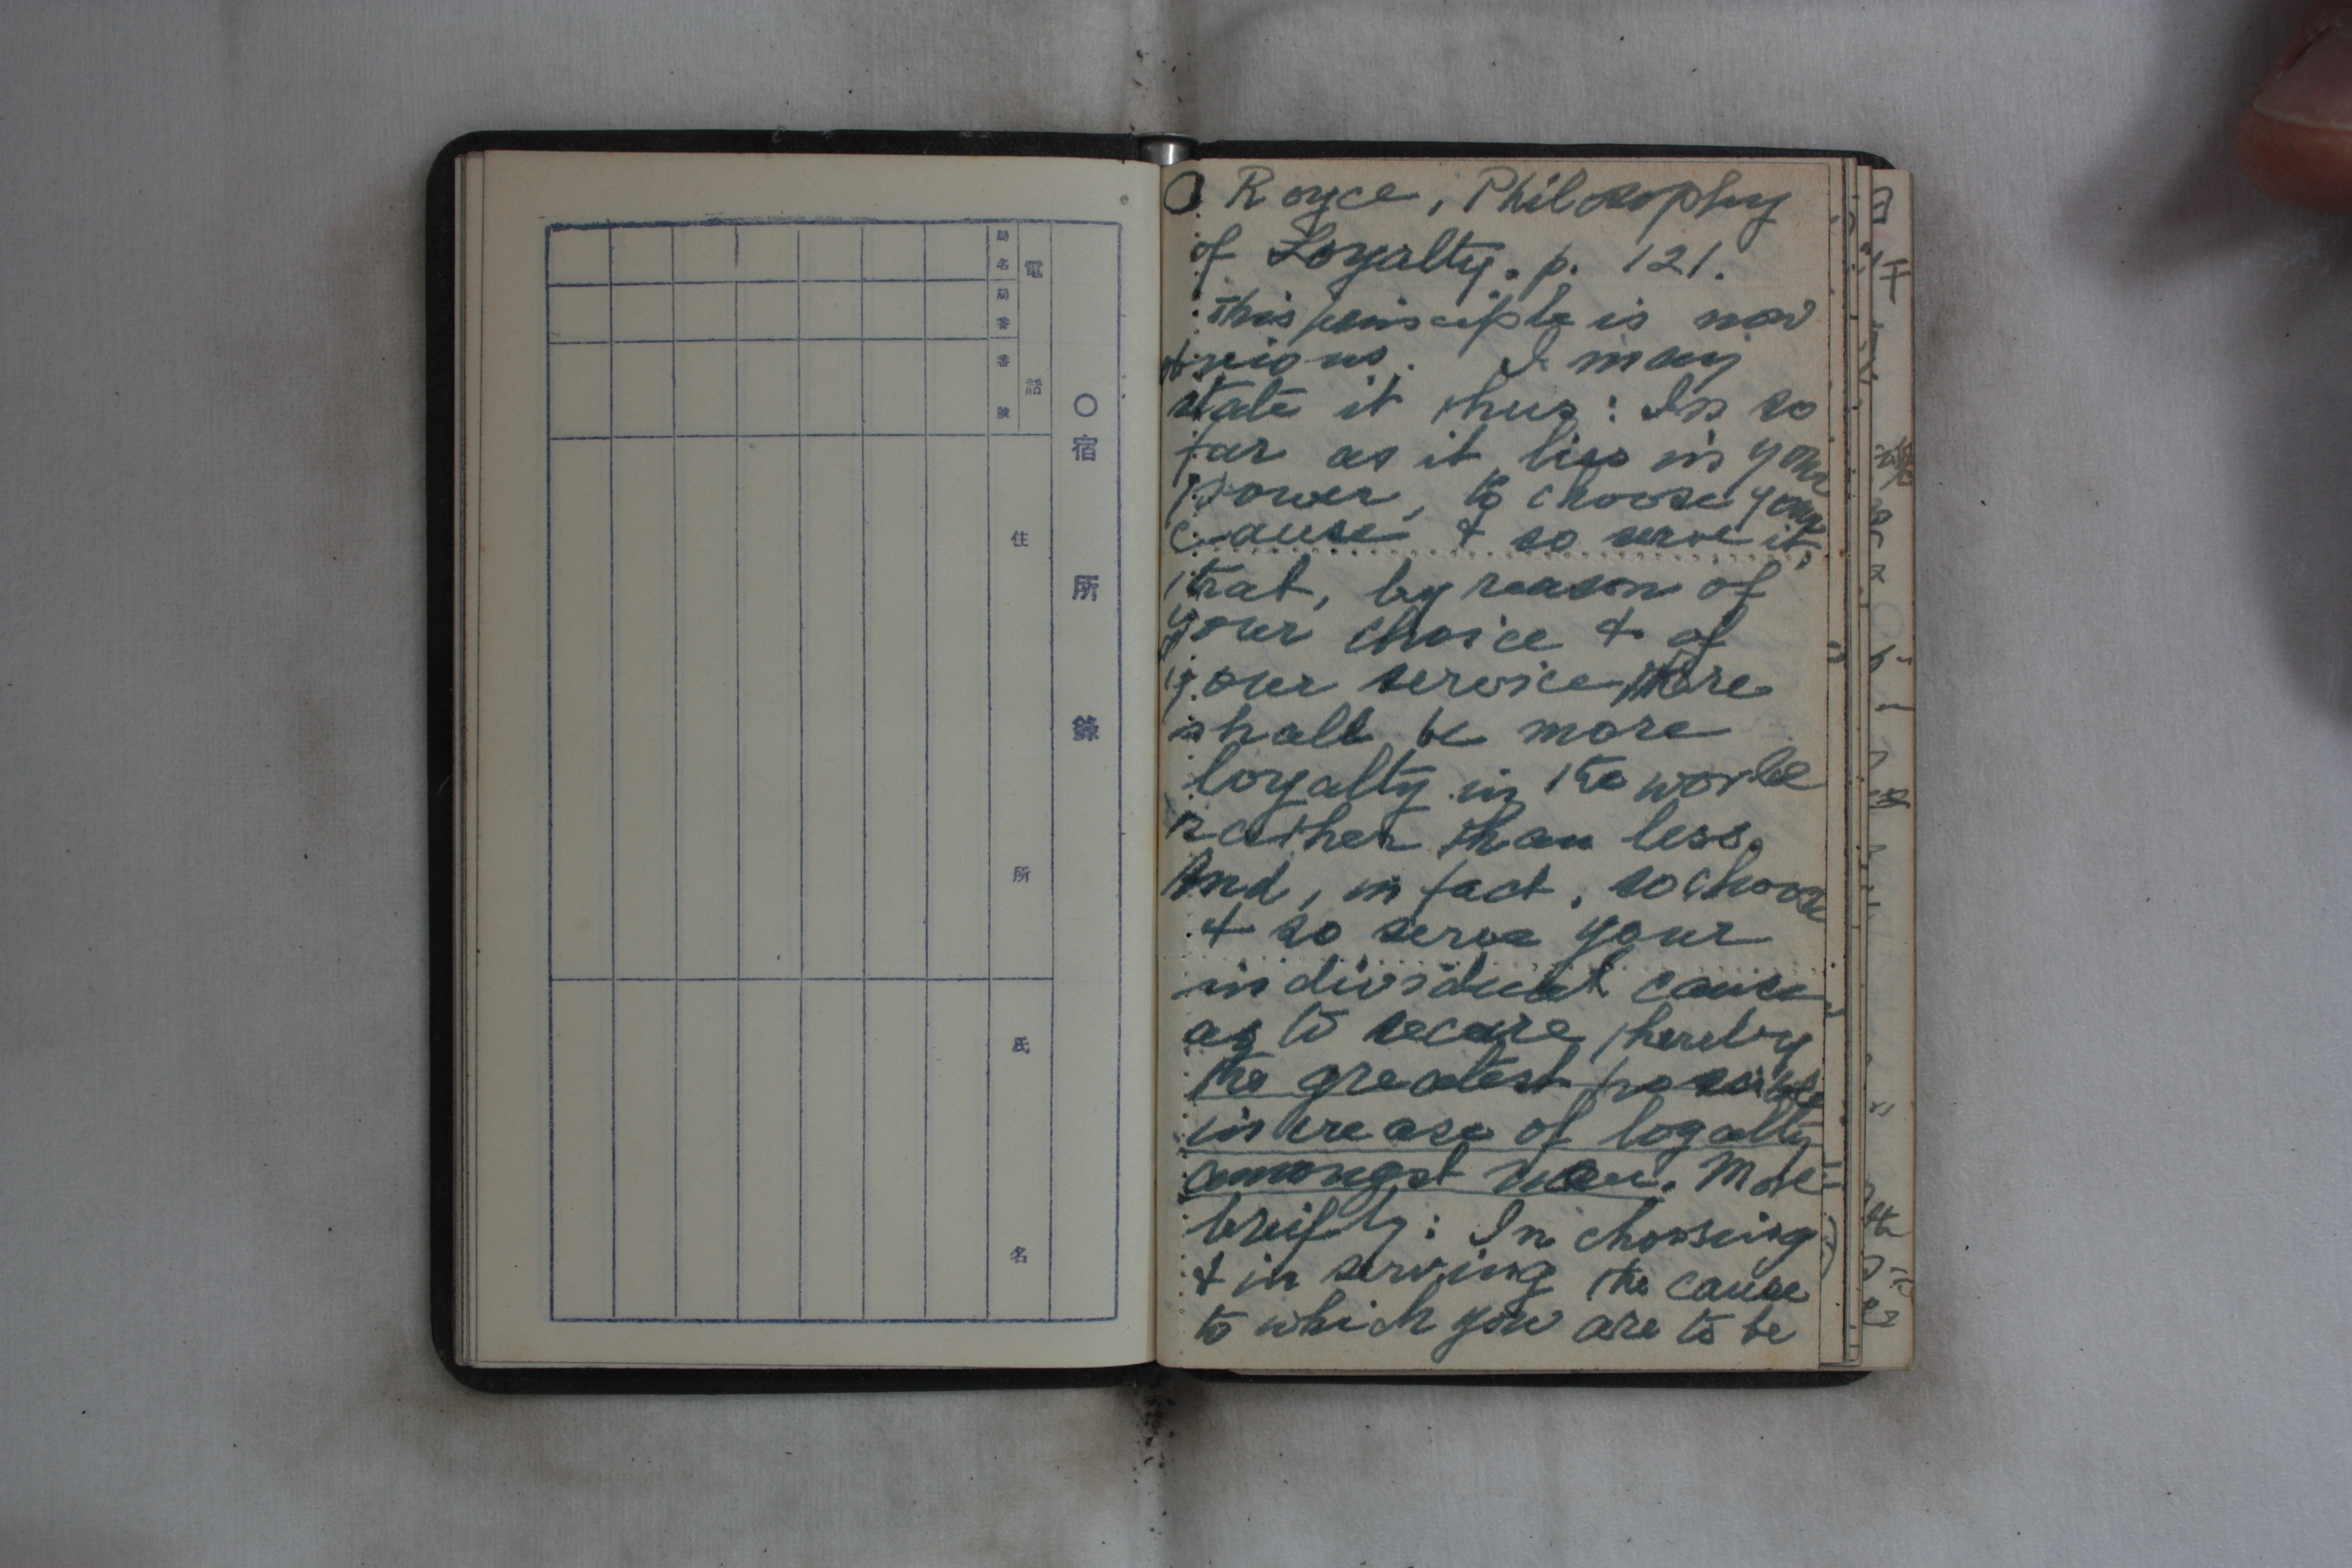 ○宿所錄
電話
局名
局番
番號
住所
氏名
○ Royce, Philosophy
of Loyalty. p. 121.
This principle is now
obvious. I may
state it thus: In so
far as it lies in your
power, to choose your
cause & so serve it,
that, by reason of
your choice & of
your service, there
shall be more
loyalty in the world
rather than less.
And, in fact, so choose
& so serve your
individual cause
as to secure thereby
the greatest possible
increase of loyalty
amongst men. More
breifly: In choosing
& in serving the cause
to which you are to be